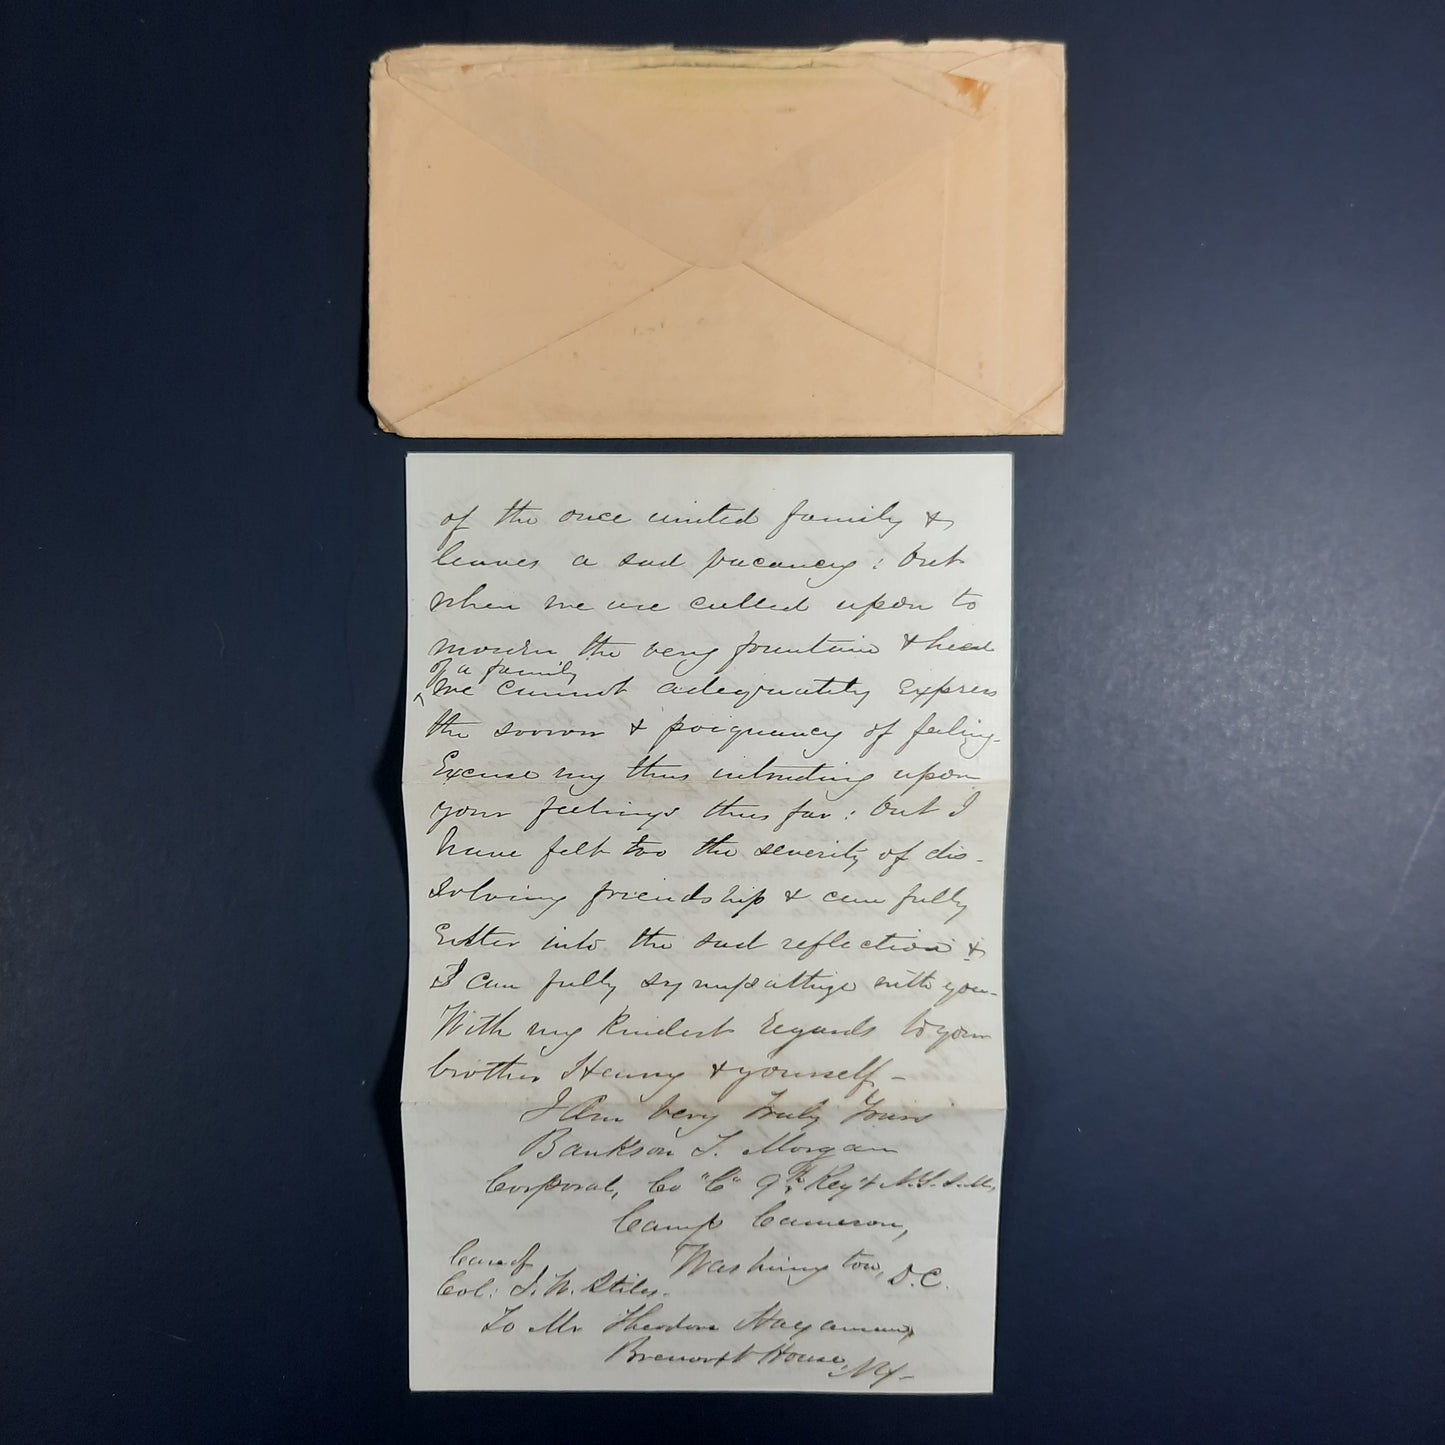 of the once united family &
leaves a sad vacancy: but
when we are called upon to
mourn the very fountain & head
of a family
^ we cannot adequately express
the sorrow & poignancy of feeling-
Excuse my thus intruding upon
your feelings thus far: but I
have felt too the severity of dis-
solving friendship & can fully
Enter into the sad reflection &
I can fully sympathize with you-
With my Kindest Regards to your
brother Henry & yourself-
I Am Very Truly Yours
Bankson T. Morgan
Corporal, Co "C" 9th Reg't N.Y.S.M.
Camp Cameron,
Care of Washington, D.C.
Col: J. W. Stiles.
To Mr Theodore Hagaman
House, NY-